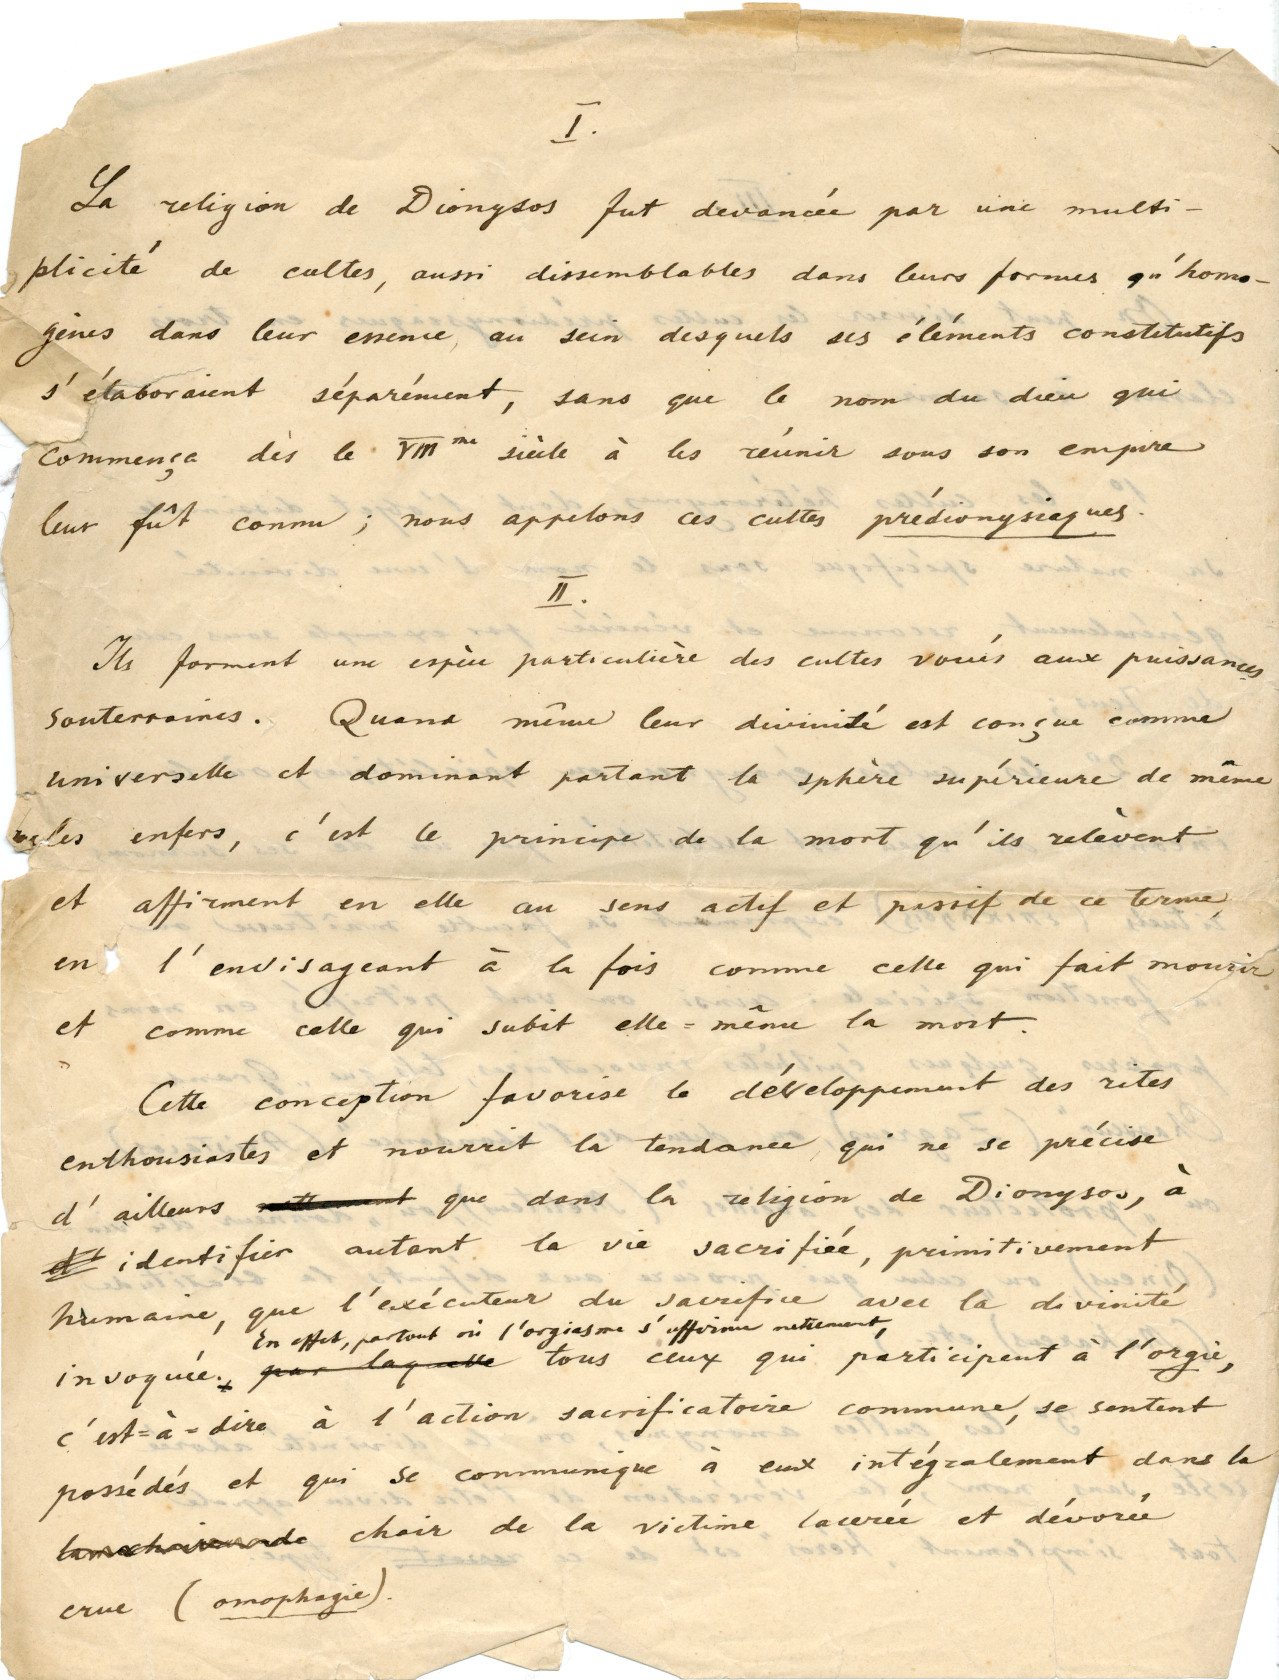 I.
La religion de Dionysos fut devancée par une multi-
plicité de cultes, aussi dissemblables dans leurs formes qu'homo-
gènes dans leur essence, au sein desquels ses éléments constitutifs
s'élaboraient séparément, sans que le nom du dieu qui
commença dès le VIIIme siècle à les réunir sous son empire
leur fût connu ; nous appelons ces cultes prédionysiaques.
II.
Ils forment une espèce particulière des cultes voués aux puissances
souterraines. Quand même leur divinité est conçue comme
universelle et dominant partant la sphère supérieure de même
les enfers, c'est le principe de la mort qu'ils relèvent
et affirment en elle au sens actif et passif de ce terme,
en l'envisageant à la fois comme celle qui fait mourir
et comme celle qui subit elle=même la mort.
Cette conception favorise le développement des rites
enthousiastes et nourrit la tendance, qui ne se précise
d'ailleurs que dans la religion de Dionysos, à
identifier autant la vie sacrifiée, primitivement
humaine, que l'exécuteur du sacrifice avec la divinité
En effet, partout où l'orgiasme s'affirme nettement,
invoquée. par laquelle tous ceux qui participent à l'orgie,
c'est=à=dire à l'action sacrificatoire commune, se sentent
possédés et qui se communique à eux intégralement dans la
chair de la victime lacérée et dévorée
crue (omophagie).